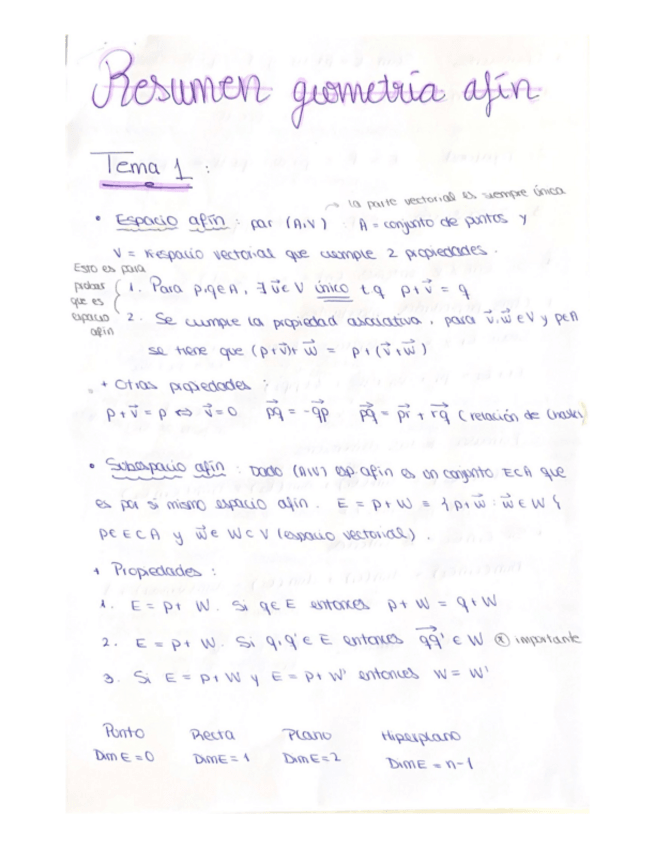 Resumen geometría afín
Tema 1 :
→ la parte vectorial es siempre única
• Espacio afín : par (A,V) : A = conjunto de puntos y
V = K espacio vectorial que cumple 2 propiedades.
Esto es para
probar
que es
espacio
afín
1. Para p,q ∈ A, ∃ v⃗ ∈ V único t.q p + v⃗ = q
2. Se cumple la propiedad asociativa, para v⃗, w⃗ ∈ V y p ∈ A
se tiene que (p + v⃗) + w⃗ = p + (v⃗ + w⃗)
+ Otras propiedades :
p + v⃗ = p ⇔ v⃗ = 0 pq⃗ = -qp⃗ pq⃗ = pr⃗ + rq⃗ (relación de Chasles)
• Subespacio afín : Dado (A,V) esp afín es un conjunto E ⊂ A que
es por si mismo espacio afín. E = p + W = { p + w⃗ : w⃗ ∈ W }
p ∈ E ⊂ A y w⃗ ∈ W ⊂ V (espacio vectorial).
+ Propiedades :
1. E = p + W. Si q ∈ E entonces p + W = q + W
2. E = p + W. Si q, q' ∈ E entonces qq'⃗ ∈ W ⊛ importante
3. Si E = p + W y E = p + W' entonces W = W'
Punto Recta Plano Hiperplano
Dim E = 0 Dim E = 1 Dim E = 2 Dim E = n-1